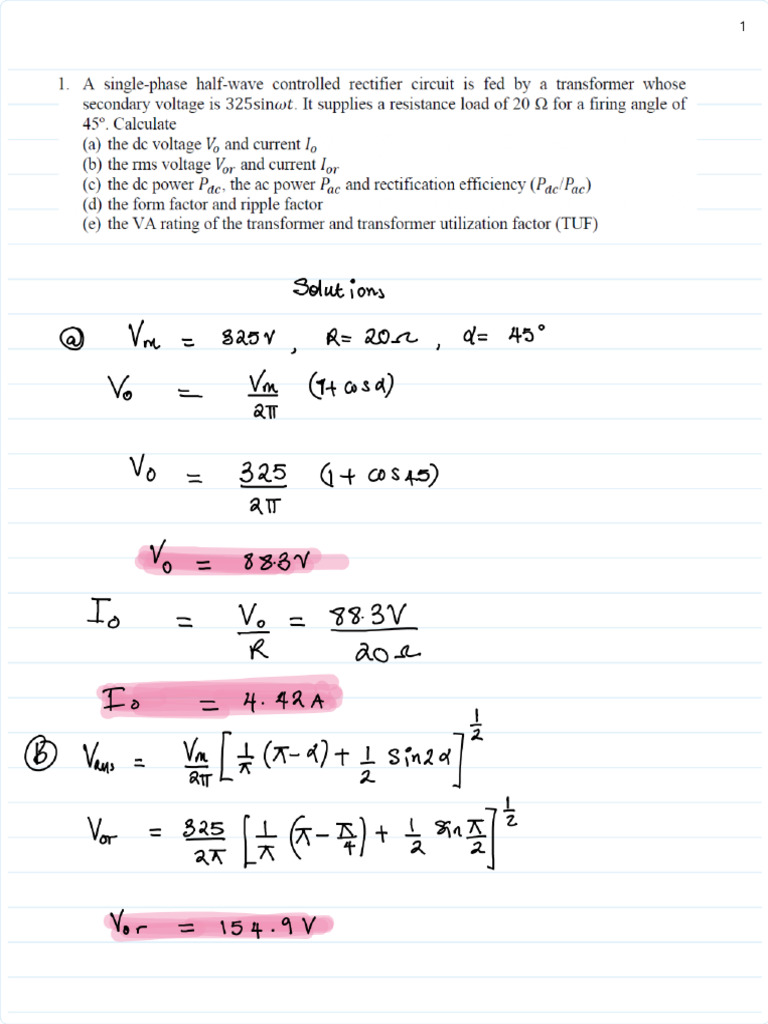 1
1. A single-phase half-wave controlled rectifier circuit is fed by a transformer whose
secondary voltage is 325sinωt. It supplies a resistance load of 20 Ω for a firing angle of
45°. Calculate
(a) the dc voltage Vₒ and current Iₒ
(b) the rms voltage Vₒᵣ and current Iₒᵣ
(c) the dc power P_dc, the ac power P_ac and rectification efficiency (P_dc/P_ac)
(d) the form factor and ripple factor
(e) the VA rating of the transformer and transformer utilization factor (TUF)
Solutions
ⓐ Vm = 325V, R = 20Ω, α = 45°
V₀ = Vm/2π (1 + cosα)
V₀ = 325/2π (1 + cos45)
V₀ = 88.3V
I₀ = V₀/R = 88.3V/20Ω
I₀ = 4.42A
Ⓑ Vrms = Vm/2π [1/π (π-α) + 1/2 sin2α]^1/2
Vor = 325/2π [1/π (π - π/4) + 1/2 sin π/2]^1/2
Vor = 154.9V